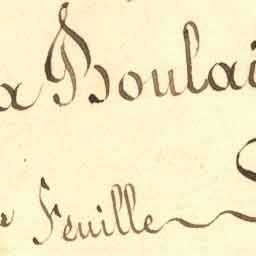 a Boulai
e Feuille